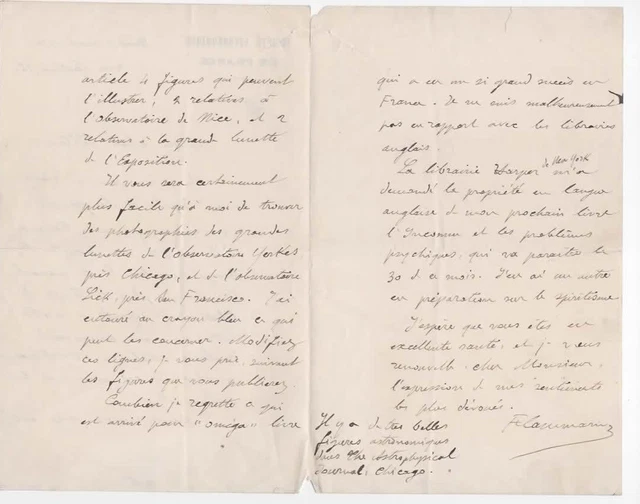 article 4 figures qui peuvent
l'illustrer, 2 relatives à
l'observatoire de Nice, et 2
relatives à la grande lunette
de l'Exposition.
Il vous sera certainement
plus facile qu'à moi de trouver
des photographies des grandes
lunettes de l'observatoire Yerkes
près Chicago, et de l'observatoire
Lick, près San Francisco. J'ai
entouré au crayon bleu ce qui
peut les concerner. Modifiez
ces lignes, je vous prie, suivant
les figures que vous publierez.
Combien je regrette ce qui
est arrivé pour "oméga" livre
qui a eu un si grand succès en
France. Je ne suis malheureusement
pas en rapport avec les libraires
anglais.
La librairie Harper de New York m'a
demandé la propriété en langue
anglaise de mon prochain livre
l'Inconnu et les problèmes
psychiques, qui va paraître le
30 de ce mois. J'en ai un autre
en préparation sur le spiritisme
J'espère que vous êtes en
excellente santé, et je vous
renouvelle, cher Monsieur,
l'expression de mes sentiments
les plus dévoués.
Flammarion
Il y a de très belles
figures astronomiques
dans The Astrophysical
Journal, Chicago.